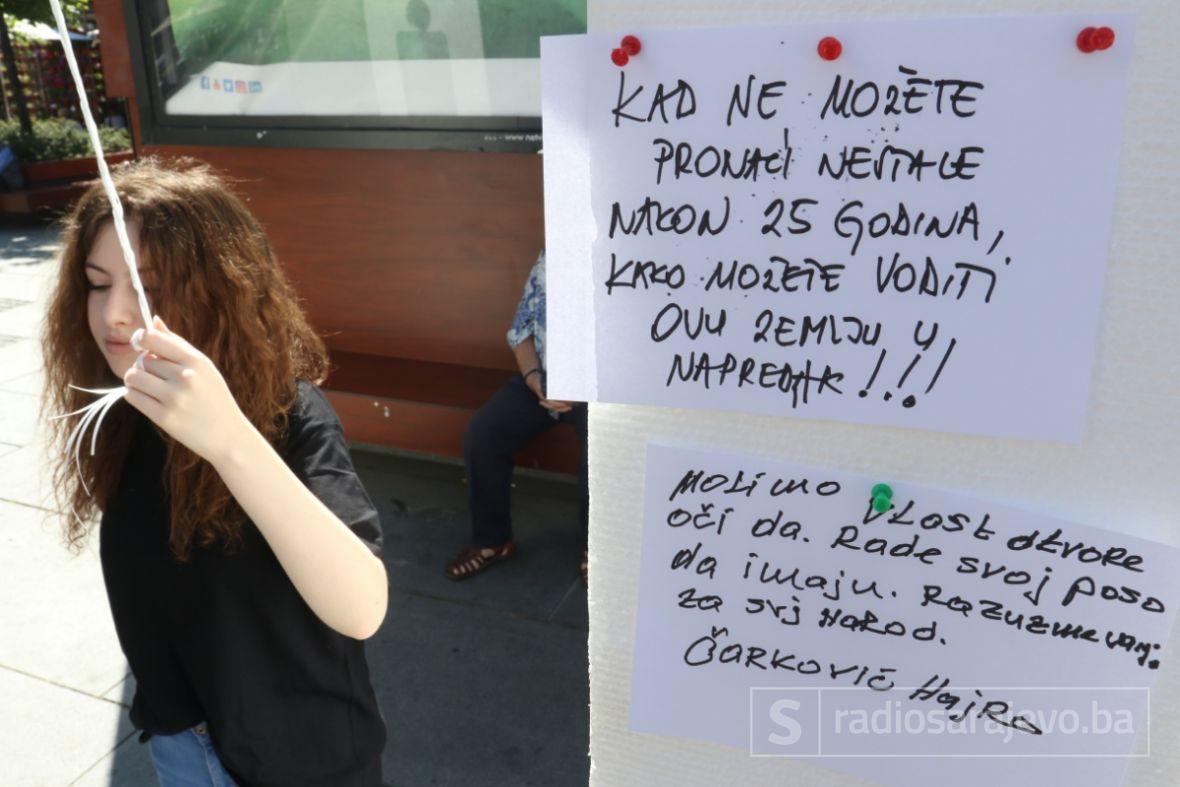 KAD NE MOŽETE
PRONAĆI NESTALE
NAKON 25 GODINA,
KAKO MOŽETE VODITI
OVU ZEMLJU U
NAPREDAK!!!
MOLIMO VLAST OTVORE
OČI DA. RADE SVOJ POSO
DA IMAJU. RAZUZMEVANJ.
ZA SVJ NAROD.
ČARKOVIĆ HAJRA
S radiosarajevo.ba